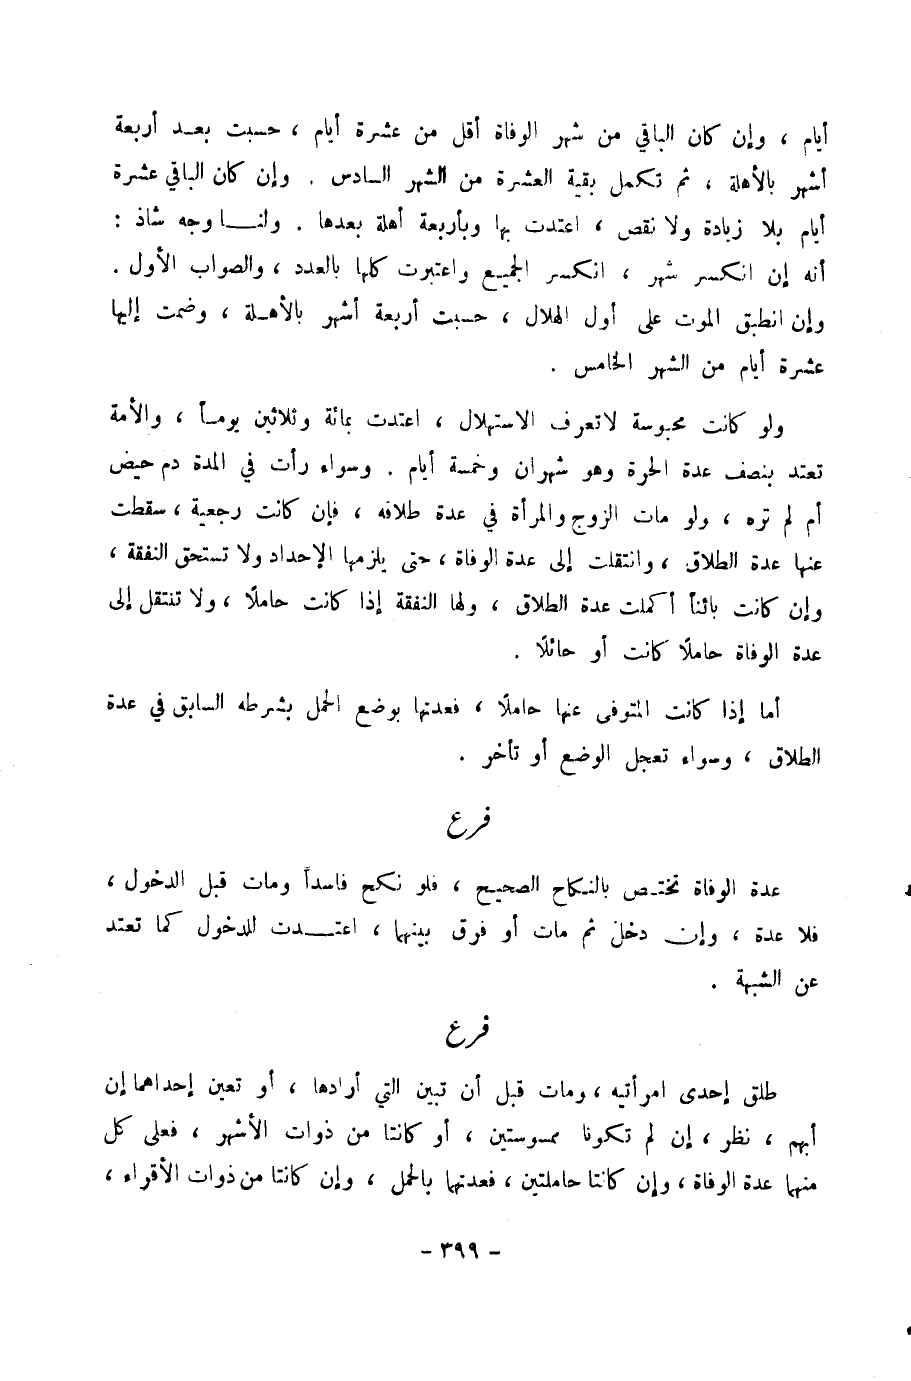 أيام ، وإن كان الباقي من شهر الوفاة أقل من عشرة أيام ، حسبت بعـد أربعة
أشهر بالأهلة ، ثم تكمل بقية العشرة من الشهر السادس . وإن كان الباقي عشرة
أيام بلا زيادة ولا نقص ، اعتدت بها وبأربعة أهلة بعدها . ولنـــا وجه شاذ :
أنه إن انكسر شهر ، انكسر الجميع واعتبرت كلها بالعدد ، والصواب الأول .
وإن انطبق الموت على أول الهلال ، حسبت أربعة أشهر بالأهـلة ، وضمت إليها
عشرة أيام من الشهر الخامس .
ولو كانت محبوسة لاتعرف الاستهلال ، اعتدت بمائة وثلاثين يومـاً ، والأمة
تعتد بنصف عدة الحرة وهو شهران وخمسة أيام . وسواء رأت في المدة دم حيض
أم لم تره ، ولو مات الزوج والمرأة في عدة طلاقه ، فإن كانت رجعية ، سقطت
عنها عدة الطلاق ، وانتقلت إلى عدة الوفاة ، حتى يلزمها الإحداد ولا تستحق النفقة ،
وإن كانت بائناً أكملت عدة الطلاق ، ولها النفقة إذا كانت حاملًا ، ولا تنتقل إلى
عدة الوفاة حاملًا كانت أو حائلًا .
أما إذا كانت المتوفى عنها حاملًا ، فعدتها بوضع الحمل بشرطه السابق في عدة
الطلاق ، وسواء تعجل الوضع أو تأخر .
فرع
عدة الوفاة تختـص بالنكاح الصحيح ، فلو نكح فاسداً ومات قبل الدخول ،
فلا عدة ، وإن دخل ثم مات أو فرق بينهما ، اعتـــدت للدخول كما تعتد
عن الشبهة .
فرع
طلق إحدى امرأتيه ، ومات قبل أن تبين التي أرادها ، أو تعين إحداهما إن
أبهم ، نظر ، إن لم تكونا ممسوستين ، أو كانتا من ذوات الأشهر ، فعلى كل
منهما عدة الوفاة ، وإن كانتا حاملتين ، فعدتهما بالحمل ، وإن كانتا من ذوات الأقراء ،
- ٣٩٩ -